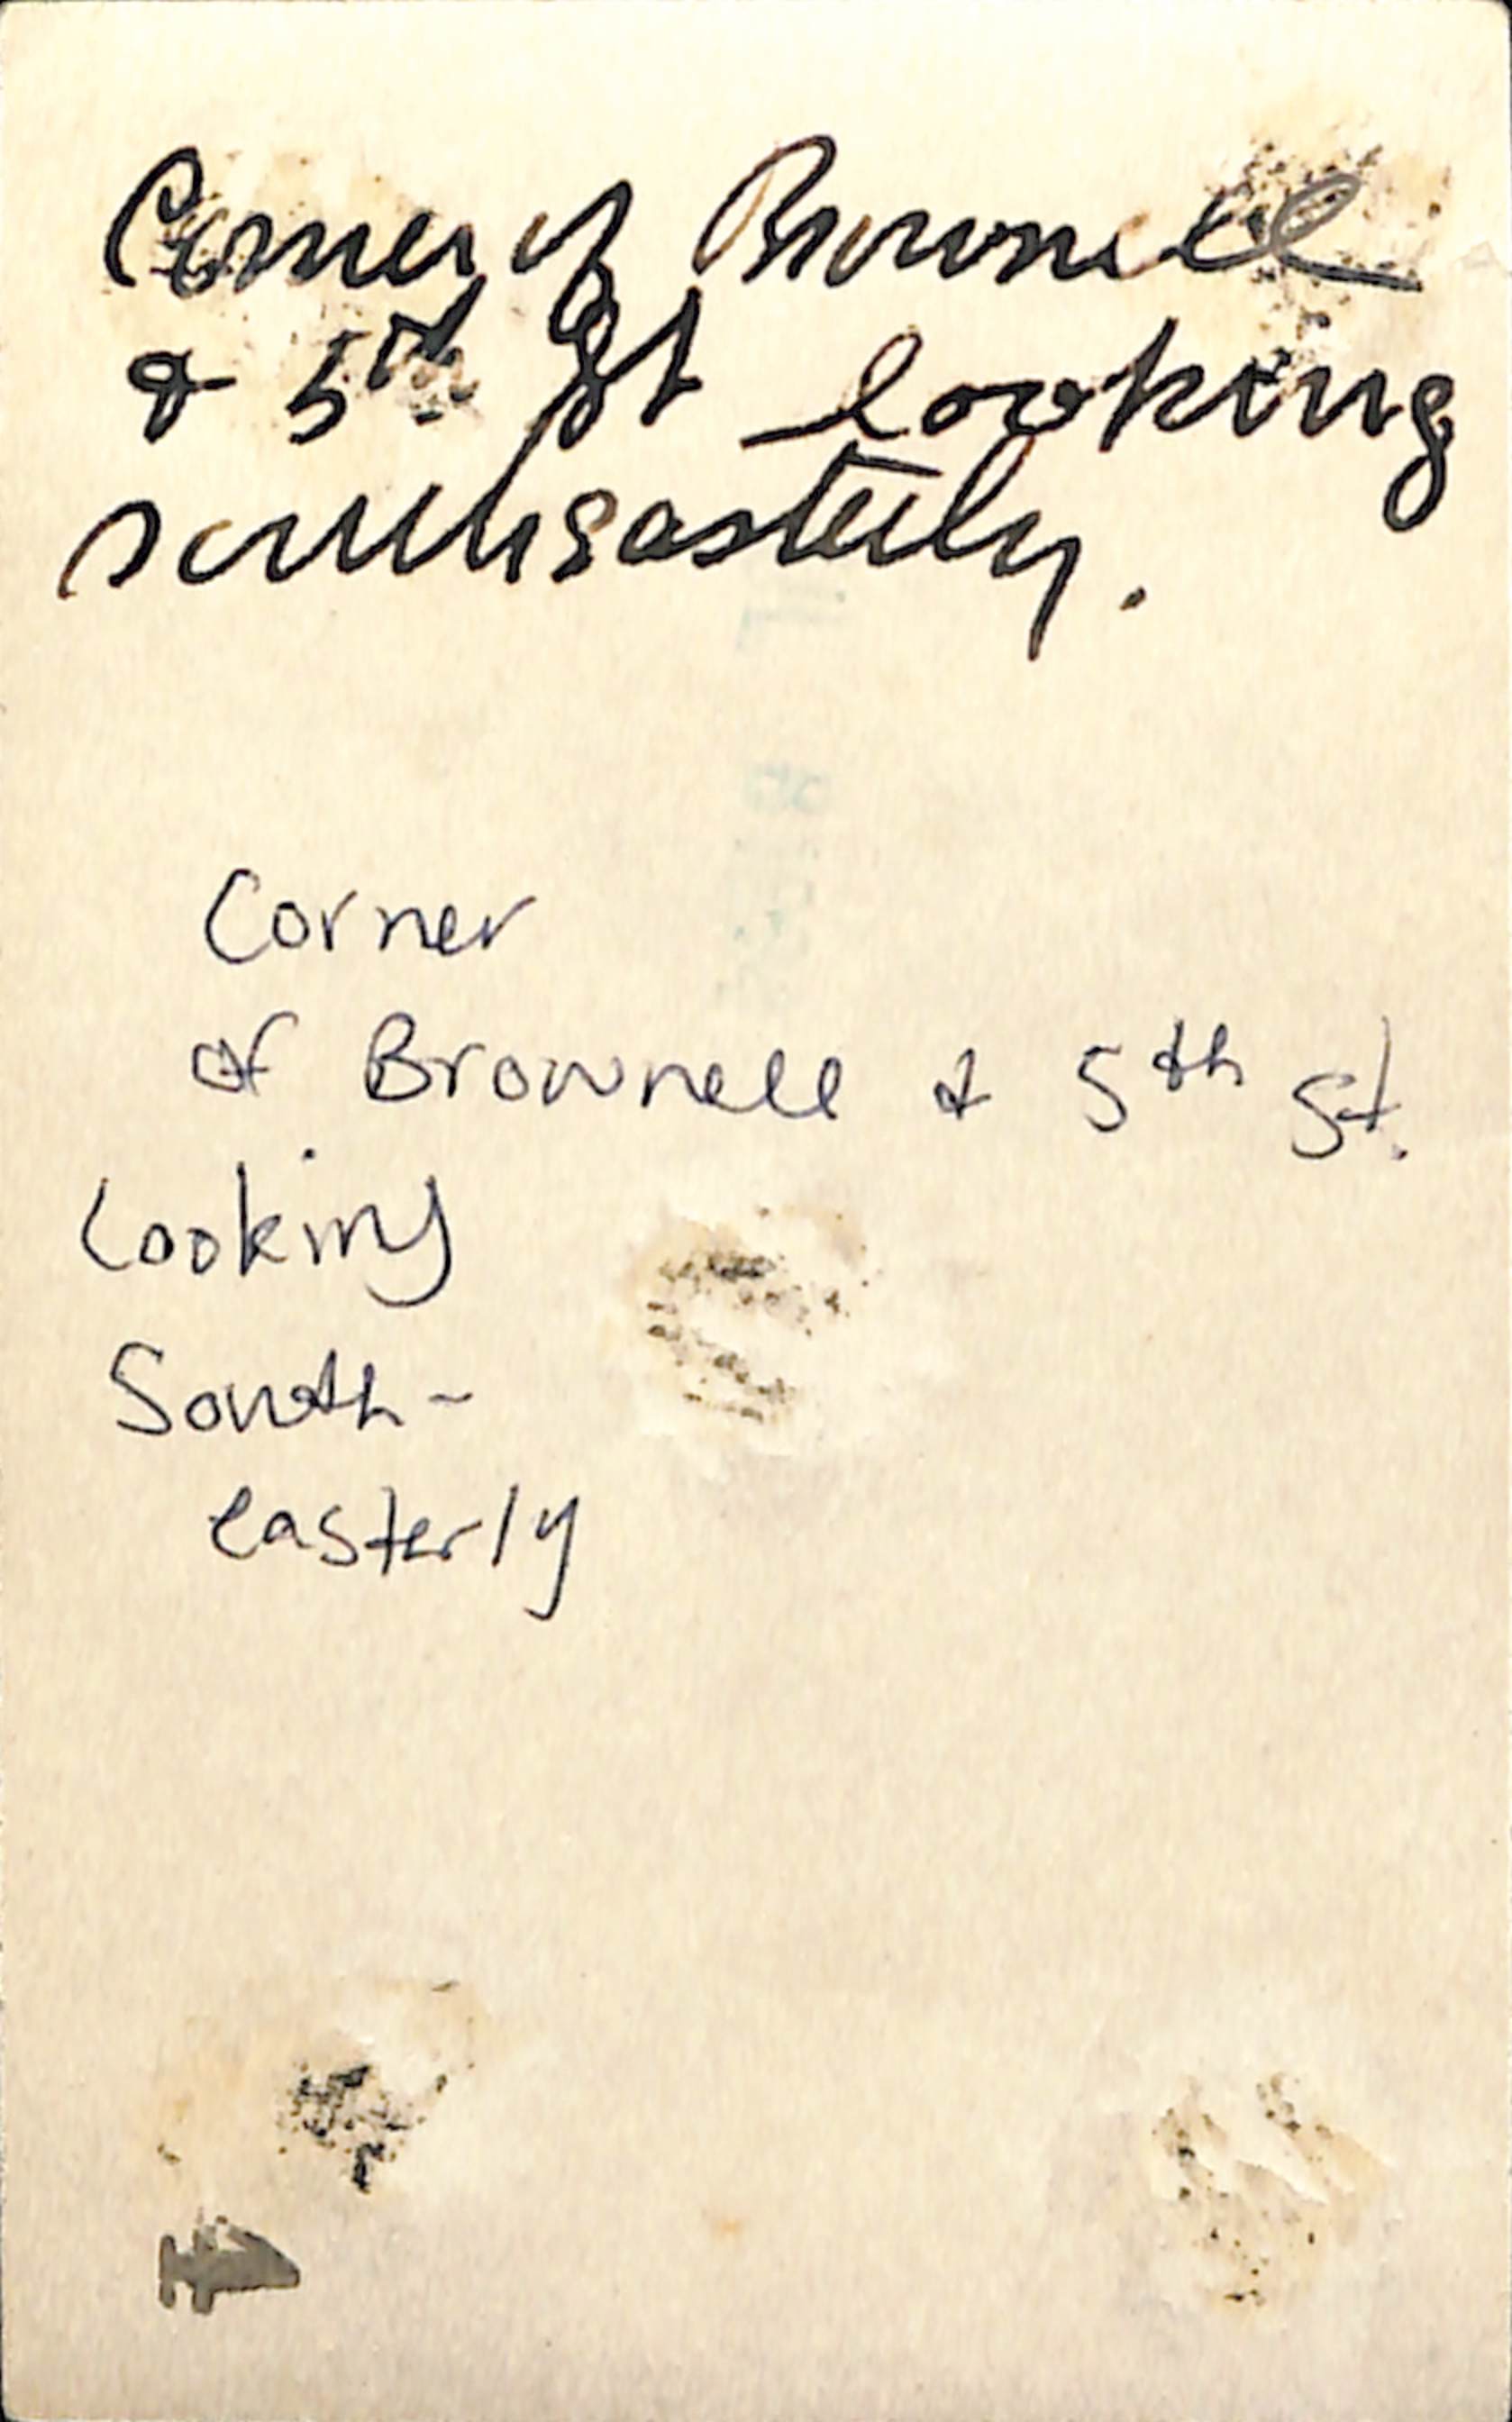 Corner of Brownell
& 5th St looking
southeasterly.
Corner
of Brownell & 5th St.
Looking
South-
easterly